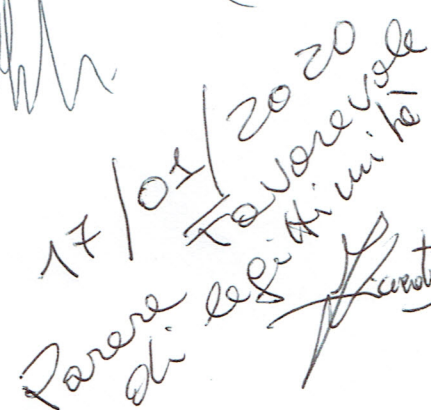 17/01/2020
Parere Favorevole
di legittimità